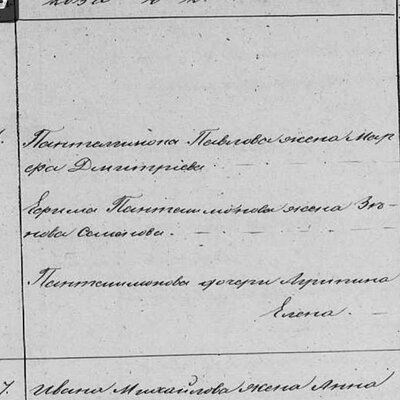 Пантелимона Павлова жена Мар-
фа Дмитріева
Ефима Пантелимонова жена Зе-
нова Семенова.
Пантелимонова дочери Агрипина
Елена.
7. Ивана Михайлова жена Анна